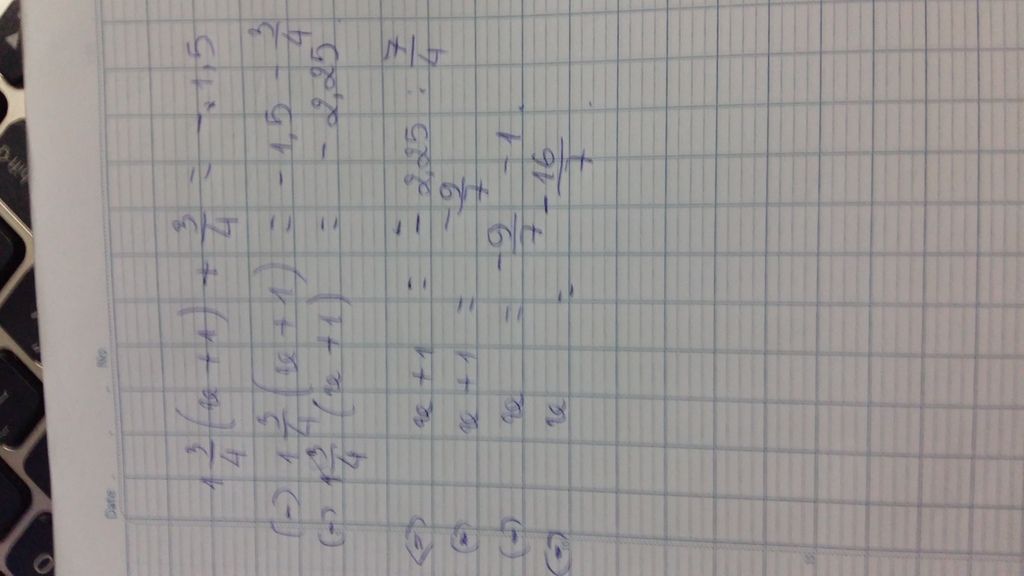 Date No
1 3/4 (x + 1) + 3/4 = - 1,5
(=) 1 3/4 (x + 1) = - 1,5 - 3/4
(=) 1 3/4 (x + 1) = - 2,25
(=) x + 1 = - 2,25 : 7/4
(=) x + 1 = - 9/7
(=) x = - 9/7 - 1
(=) x = - 16/7